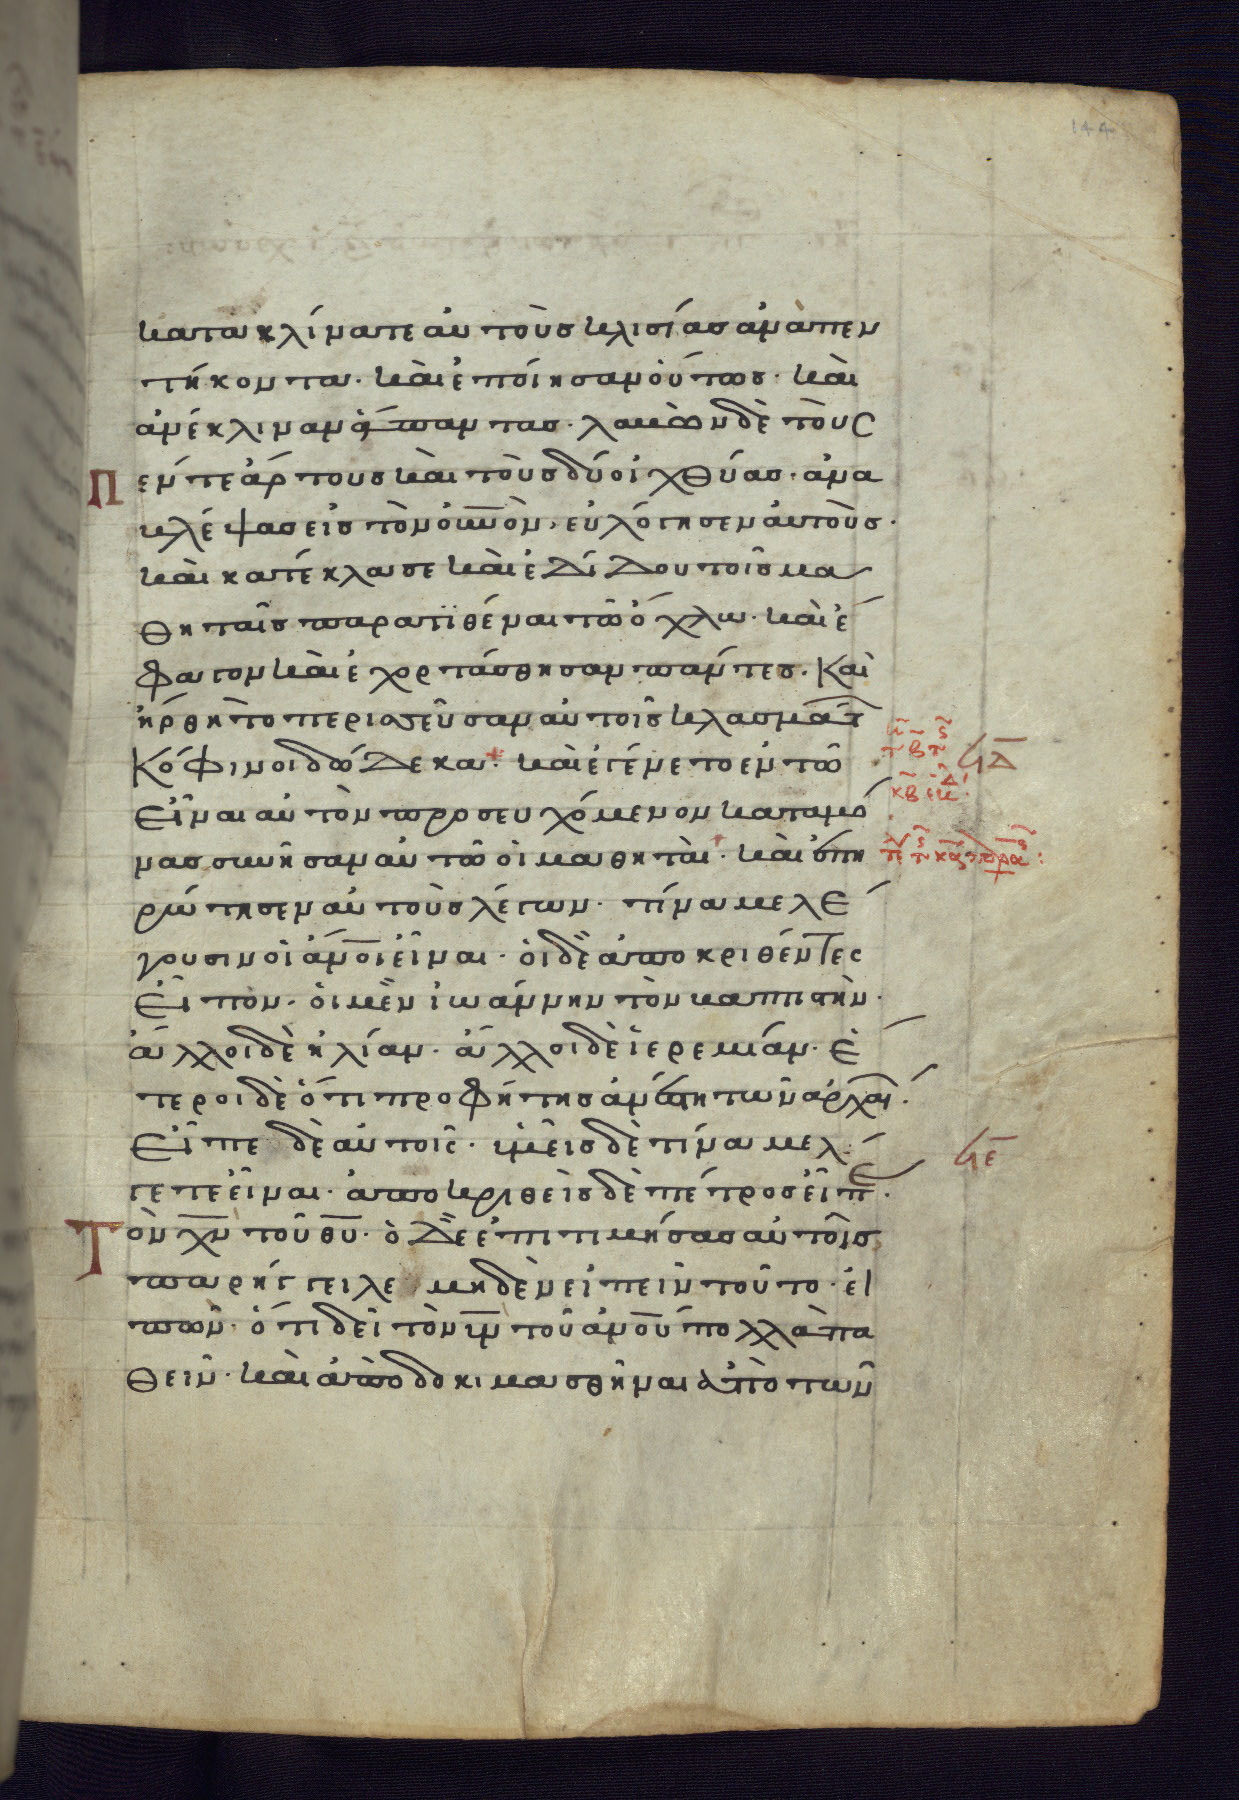 144
κατακλίνατε αὐτοὺς κλισίας ἀνὰ πεν
τήκοντα· καὶ ἐποίησαν οὕτως· καὶ
ἀνέκλιναν ἅπαντας· λαβὼν δὲ τοὺς
Πέντε ἄρτους καὶ τοὺς δύο ἰχθύας· ἀνα
βλέψας εἰς τὸν οὐνὸν, εὐλόγησεν αὐτοὺς·
καὶ κατέκλασε καὶ ἐδίδου τοῖς μα
θηταῖς παρατιθέναι τῶ ὄχλω· καὶ ἔ
φαγον καὶ ἐχορτάσθησαν πάντες· Καὶ
ἤρθη τὸ περισσεῦσαν αὐτοῖς κλασμάτ
Κόφινοι δώδεκα· καὶ ἐγένετο ἐν τῶ
εἶναι αὐτὸν προσευχόμενον καταμό
νας συνῆσαν αὐτῶ οἱ μαθηταὶ· καὶ ἐπη
ρώτησεν αὐτοὺς λέγων· τίνα με λέ
γουσιν οἱ ἄνοι εἶναι· οἱ δὲ ἀποκριθέντες
εἶπον· οἱ μὲν ἰωάννην τὸν βαπτιστὴν·
ἄλλοι δὲ ἠλίαν· ἄλλοι δὲ ἱερεμίαν· ἕ
τεροι δὲ ὅτι προφήτης ἀνέστη τῶν ἀρχαί·
Εἶπε δὲ αὐτοῖς· ὑμεῖς δὲ τίνα με λέ
γετε εἶναι· ἀποκριθεὶς δὲ πέτρος εἶπε·
Τὸν χν τοῦ θυ· ὁ δὲ ἐπιτιμήσας αὐτοῖς
παρήγγειλε μηδενὶ εἰπεῖν τοῦτο· εἰ
πὼν· ὅτι δεῖ τὸν υν τοῦ ἀνου πολλὰ πα
θεῖν· καὶ ἀποδοκιμασθῆναι ἀπὸ τῶν